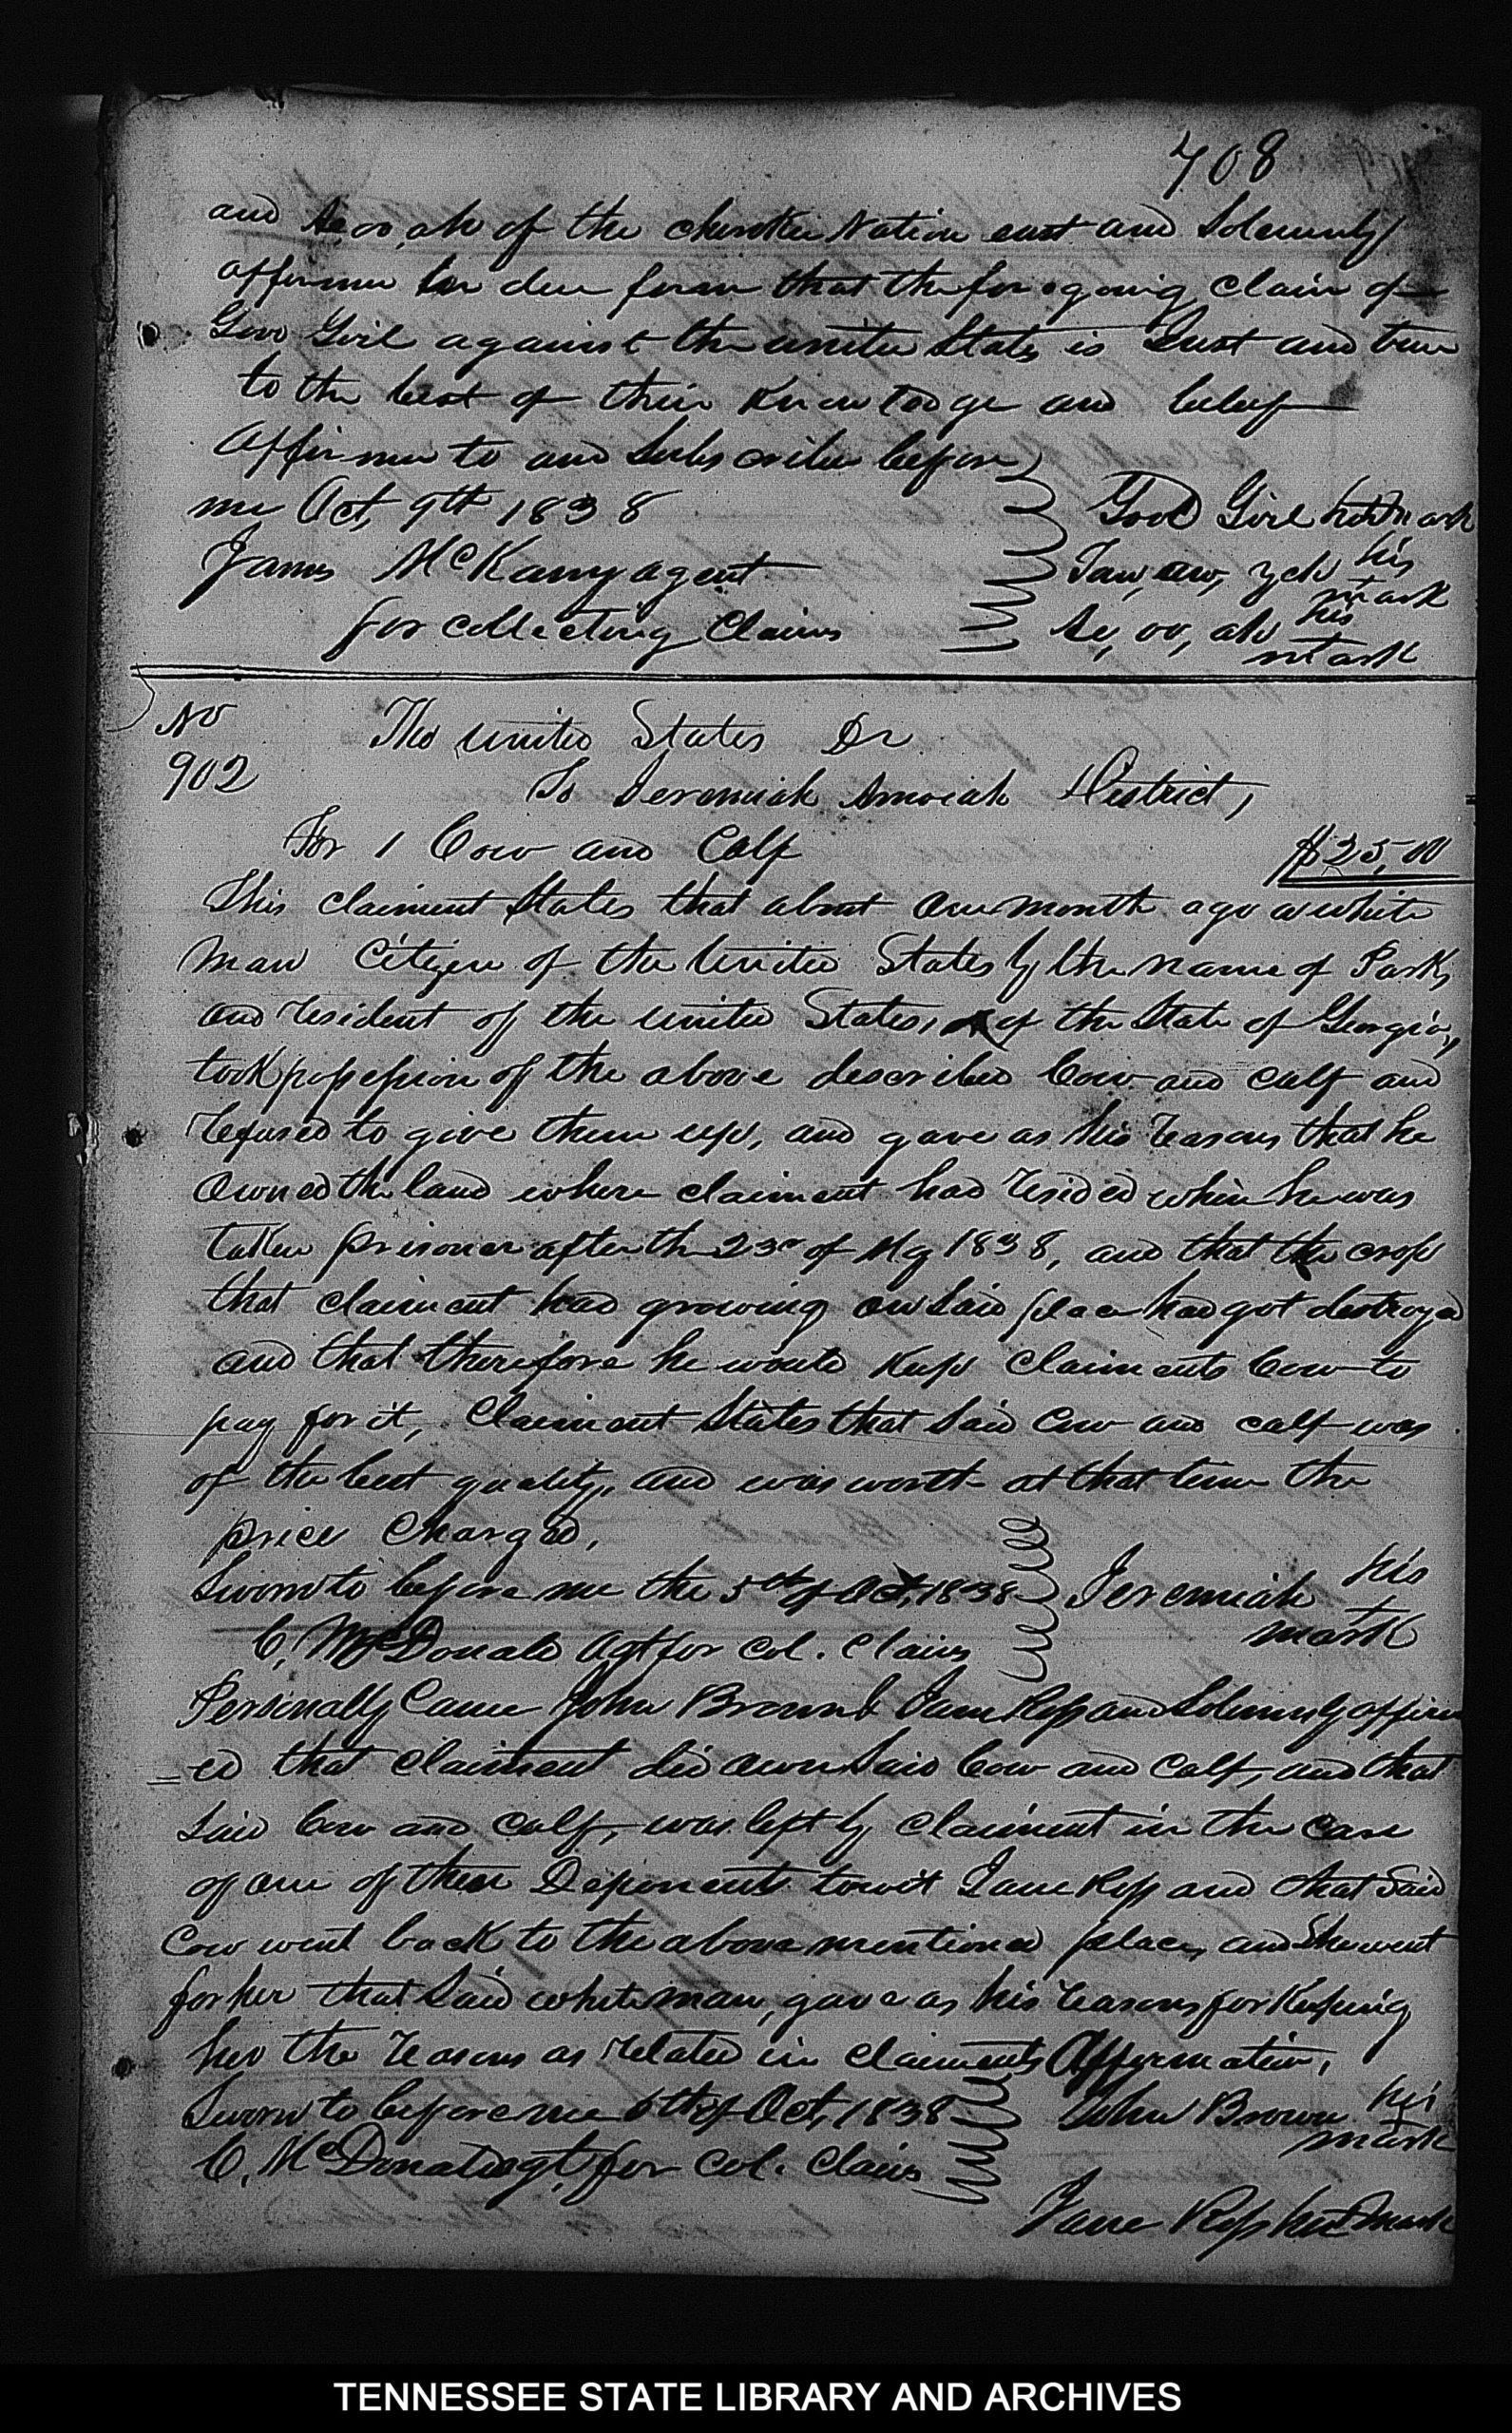 408
and Se,oo,ah of the cherokee Nation east and Solemnly
affirmed in due form that the forgoing claim of
Good Girl against the united States is Just and true
to the best of their Knowledge and belief
Affirmed to and Subscribed before
me Oct, 9th 1838
James McKamy agent
for collecting Claims
Good Girl her mark
Taw, aw, yeh his mark
Se, oo, ah his mark
No 902
The united States Dr
To Jeremiah Amoiah District,
For 1 Cow and Calf $25,00
This claiment States that about one month ago a white
man Citizen of the United States by the name of Parks
and resident of the united States, of the State of Georgia,
took possession of the above described Cow and calf and
refused to give them up, and gave as his reasons that he
owned the land where claiment had resided when he was
taken prisoner after the 23rd of My 1838, and that the crop
that claimant had growing on said place had got destroyed
and that therefore he would keep claiments Cow to
pay for it, Claimant States that Said Cow and calf was
of the best quality, and was worth at that time the
price Charged,
Sworn to before me the 5th of Oct, 1838
C, McDonald Agt for Col. Claims
Jeremiah his mark
Personally Came John Brown & Jane Ross and Solemnly affirm
ed that claiment did own Said Cow and Calf, and that
Said Cow and Calf, was left by claiment in the care
of one of these Deponents towit Jane Ross and that Said
Cow went back to the above mentioned place, and She went
for her that Said white man, gave as his reasons for Keeping
her the reasons as related in claiments Affirmation,
Sworn to before me 6th of Oct, 1838
C, McDonald agt, for Col. Claims
John Brown his mark
Jane Ross her mark
TENNESSEE STATE LIBRARY AND ARCHIVES